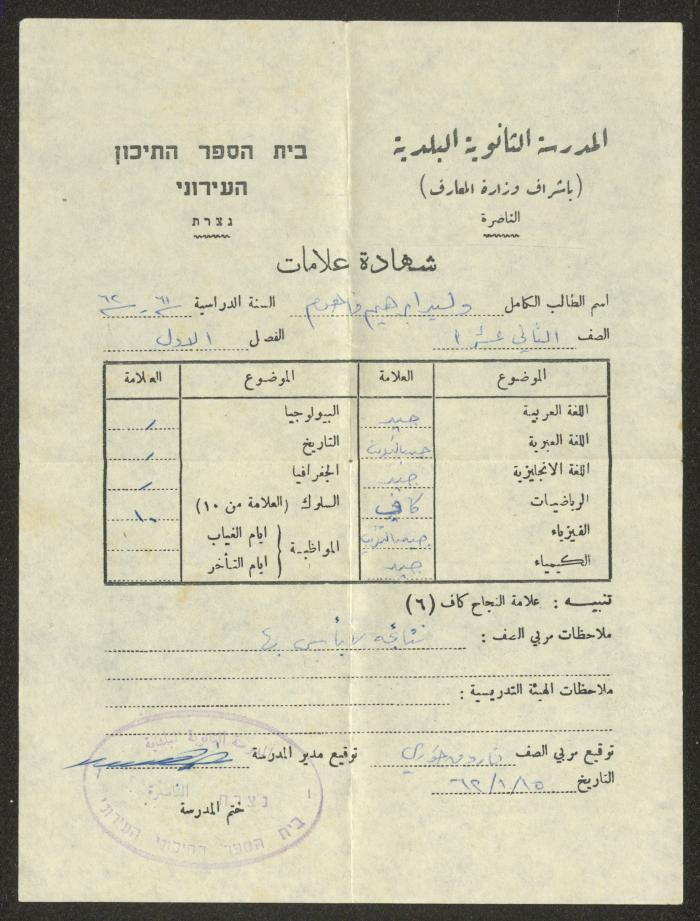 المدرسة الثانوية البلدية
(باشراف وزارة المعارف)
الناصرة
בית הספר התיכון
העירוני
נצרת
شهادة علامات
اسم الطالب الكامل وليد ابراهيم فاهوم السنة الدراسية ٦١ - ٦٢
الصف الثاني عشر ١ الفصل الاول
الموضوع العلامة الموضوع العلامة
اللغة العربية جيد البيولوجيا /
اللغة العبرية جيد بالتقريب التاريخ /
اللغة الانجليزية جيد الجغرافيا /
الرياضيات كافي السلوك (العلامة من ١٠) ١٠
الفيزياء جيد بالتقريب المواظبة { ايام الغياب
الكيمياء جيد ايام التأخر
تنبيه : علامة النجاح كاف (٦)
ملاحظات مربي الصف : نتائجه لا بأس بها
ملاحظات الهيئة التدريسية :
توقيع مربي الصف خوري توقيع مدير المدرسة
التاريخ ٦٢/١/١٥
ختم المدرسة
المدرسة الثانوية البلدية
الناصرة
נצרת
בית הספר התיכוני העירוני